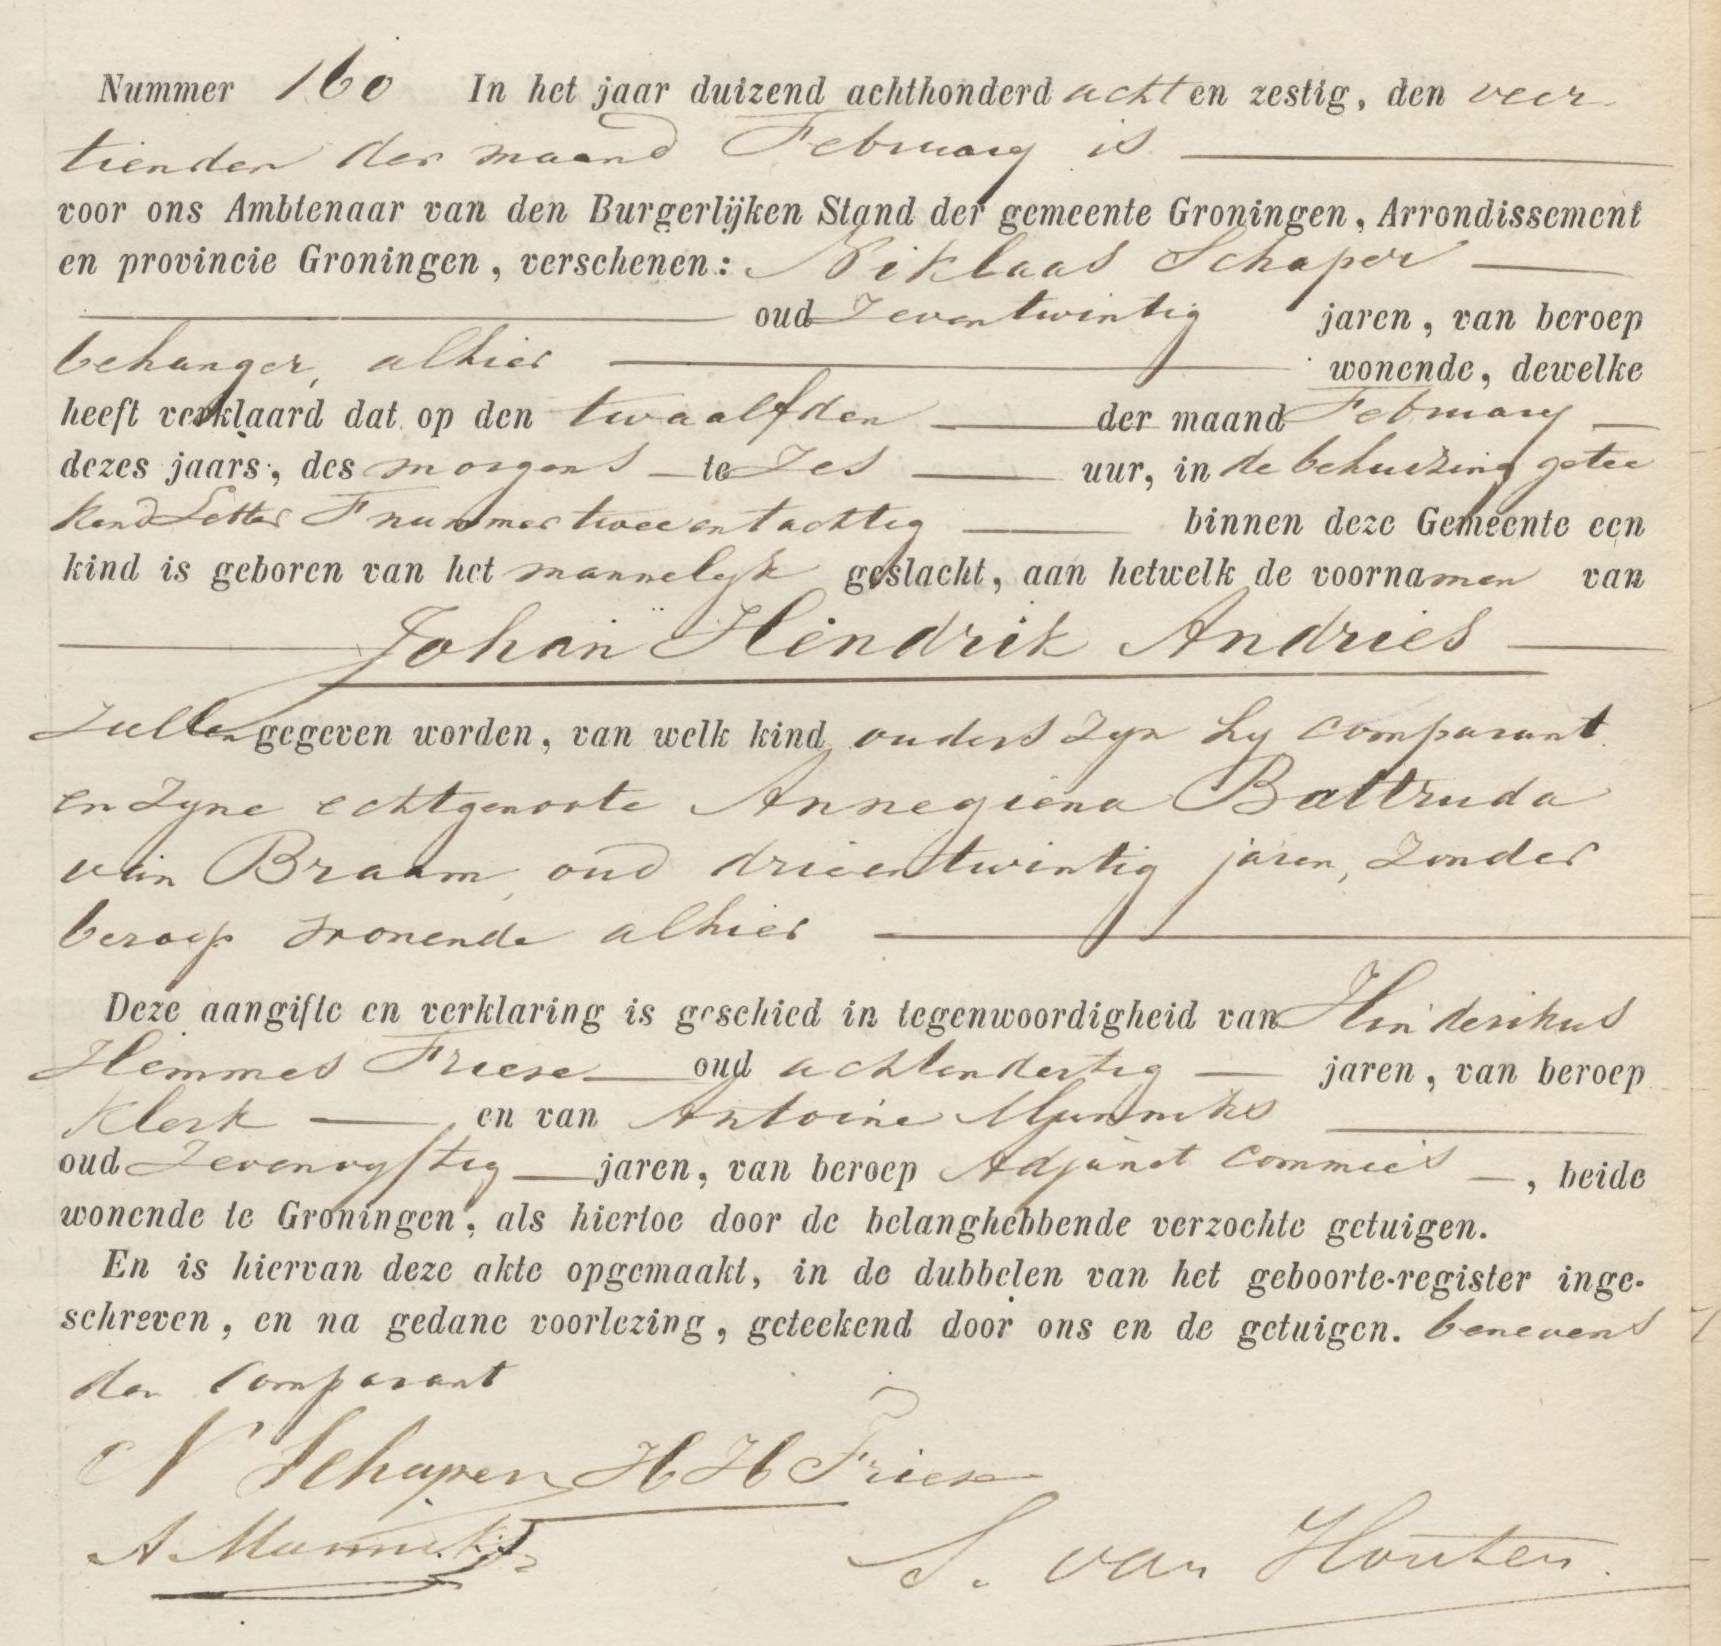 Nummer 160 In het jaar duizend achthonderd acht en zestig, den veer
tienden der maand February is
voor ons Ambtenaar van den Burgerlijken Stand der gemeente Groningen, Arrondissement
en provincie Groningen, verschenen: Niklaas Schaper
oud Zeventwintig jaren, van beroep
behanger, alhier wonende, dewelke
heeft verklaard dat op den twaalfden der maand February
dezes jaars, des morgens te Zes uur, in de behuizing getee
kend Letter F nummer twee en tachtig binnen deze Gemeente een
kind is geboren van het mannelyk geslacht, aan hetwelk de voornamen van
Johan Hindrik Andries
zullen gegeven worden, van welk kind ouders zyn hy comparant
en zyne echtgenoote Annegiena Battruda
van Braam, oud drieentwintig jaren, zonder
beroep wonende alhier
Deze aangifte en verklaring is geschied in tegenwoordigheid van Hinderikus
Hemmes Friese oud achtendertig jaren, van beroep
Klerk en van Antoine Munniks
oud Zevenvyftig jaren, van beroep Adjunct commies, beide
wonende te Groningen, als hiertoe door de belanghebbende verzochte getuigen.
En is hiervan deze akte opgemaakt, in de dubbelen van het geboorte-register inge-
schreven, en na gedane voorlezing, geteekend door ons en de getuigen. benevens
den comparant
N Schaper H H Friese
A. Munniks
S. van Houten.